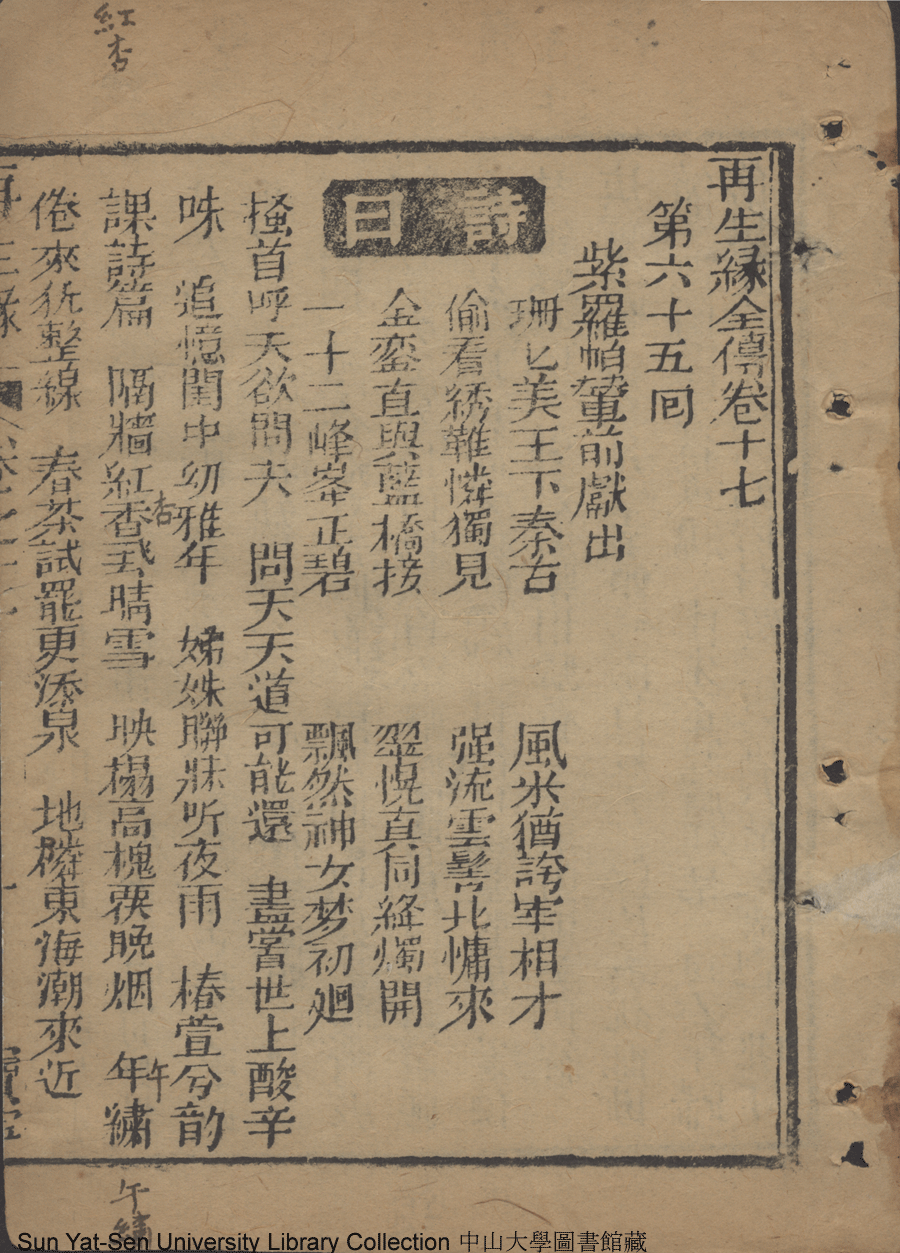 再生緣全傳卷十七
第六十五囘
紫羅帕輦前獻出
詩曰
珊匕美王下秦台 風米猶誇宰相才
偷看綉難憐獨見 强流雲髩北慵來
金鑾直與藍橋接 翠幌真同絳燭開
一十二峰峯正碧 飄然神女梦初廻
搔首呼天欲問夫 問天天道可能還 盡嘗世上酸辛
味 追憶閨中幼雅年 姊妹聯牀听夜雨 椿萱分韵
課詩篇 隔牆紅香飛晴雪 映榻高槐覆晚烟 年繡
倦來犹整線 春茶試罷更添泉 地隣東海潮來近
杏
午
紅杏
午繡
Sun Yat-Sen University Library Collection 中山大學圖書館藏